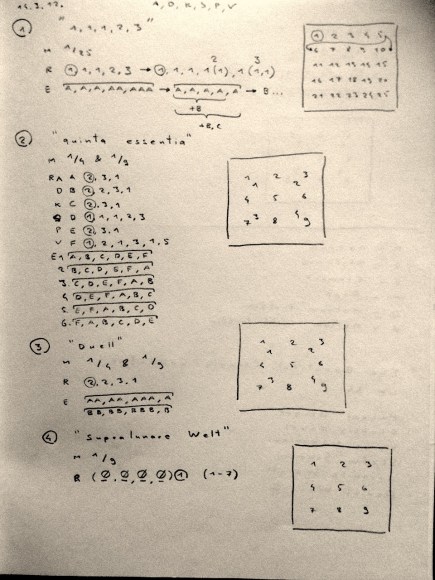 14.3.12.
1, D, K, S, P, V
① "1, 1, 1, 2, 3"
M 1/25
R ①, 1, 1, 2, 3 → ①, 1, 1, 1(1), 1(1,1)
2 3
E A, A, A, AA, AAA → A, A, A, A, A → B...
+B
+B, C
① 2 3 4 5
6 7 8 9 10
11 12 13 14 15
16 17 18 19 20
21 22 23 24 25
② "quinta essentia"
M 1/4 & 1/9
RA A ②, 3, 1
D B ②, 2, 3, 1
K C ②, 3, 1
D ①, 1, 1, 2, 3
P E ②, 3, 1
V F ①, 2, 1, 3, 1, 5
E1 A, B, C, D, E, F
2. B, C, D, E, F, A
3. C, D, E, F, A, B
4. D, E, F, A, B, C
5. E, F, A, B, C, D
6. F, A, B, C, D, E
1 2 3
1 2
4 5 6
3 4
7 8 9
③ "Duell"
M 1/4 & 1/9
R ②, 2, 3, 1
E AA, AA, AAA, A
BB, BB, BBB, B
1 2 3
1 2
4 5 6
3 4
7 8 9
④ "Supralunare Welt"
M 1/9
R (Ø, Ø, Ø, Ø) ① (1-7)
1 2 3
4 5 6
7 8 9